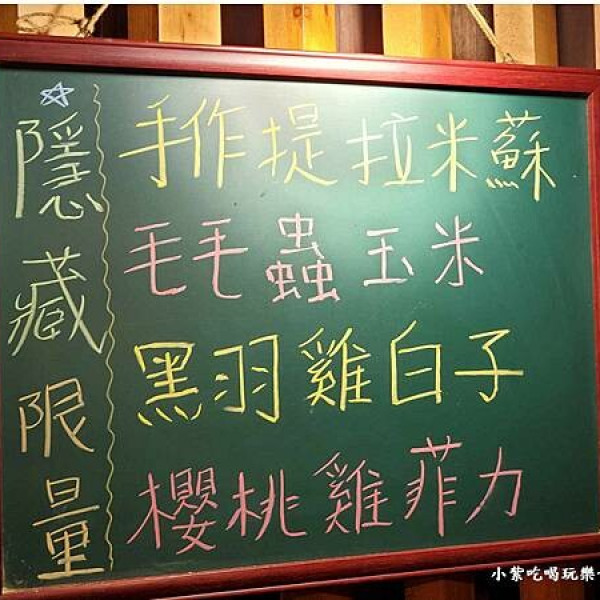 隱藏限量
手作提拉米蘇
毛毛蟲玉米
黑羽雞白子
櫻桃雞菲力
小紫吃喝玩樂